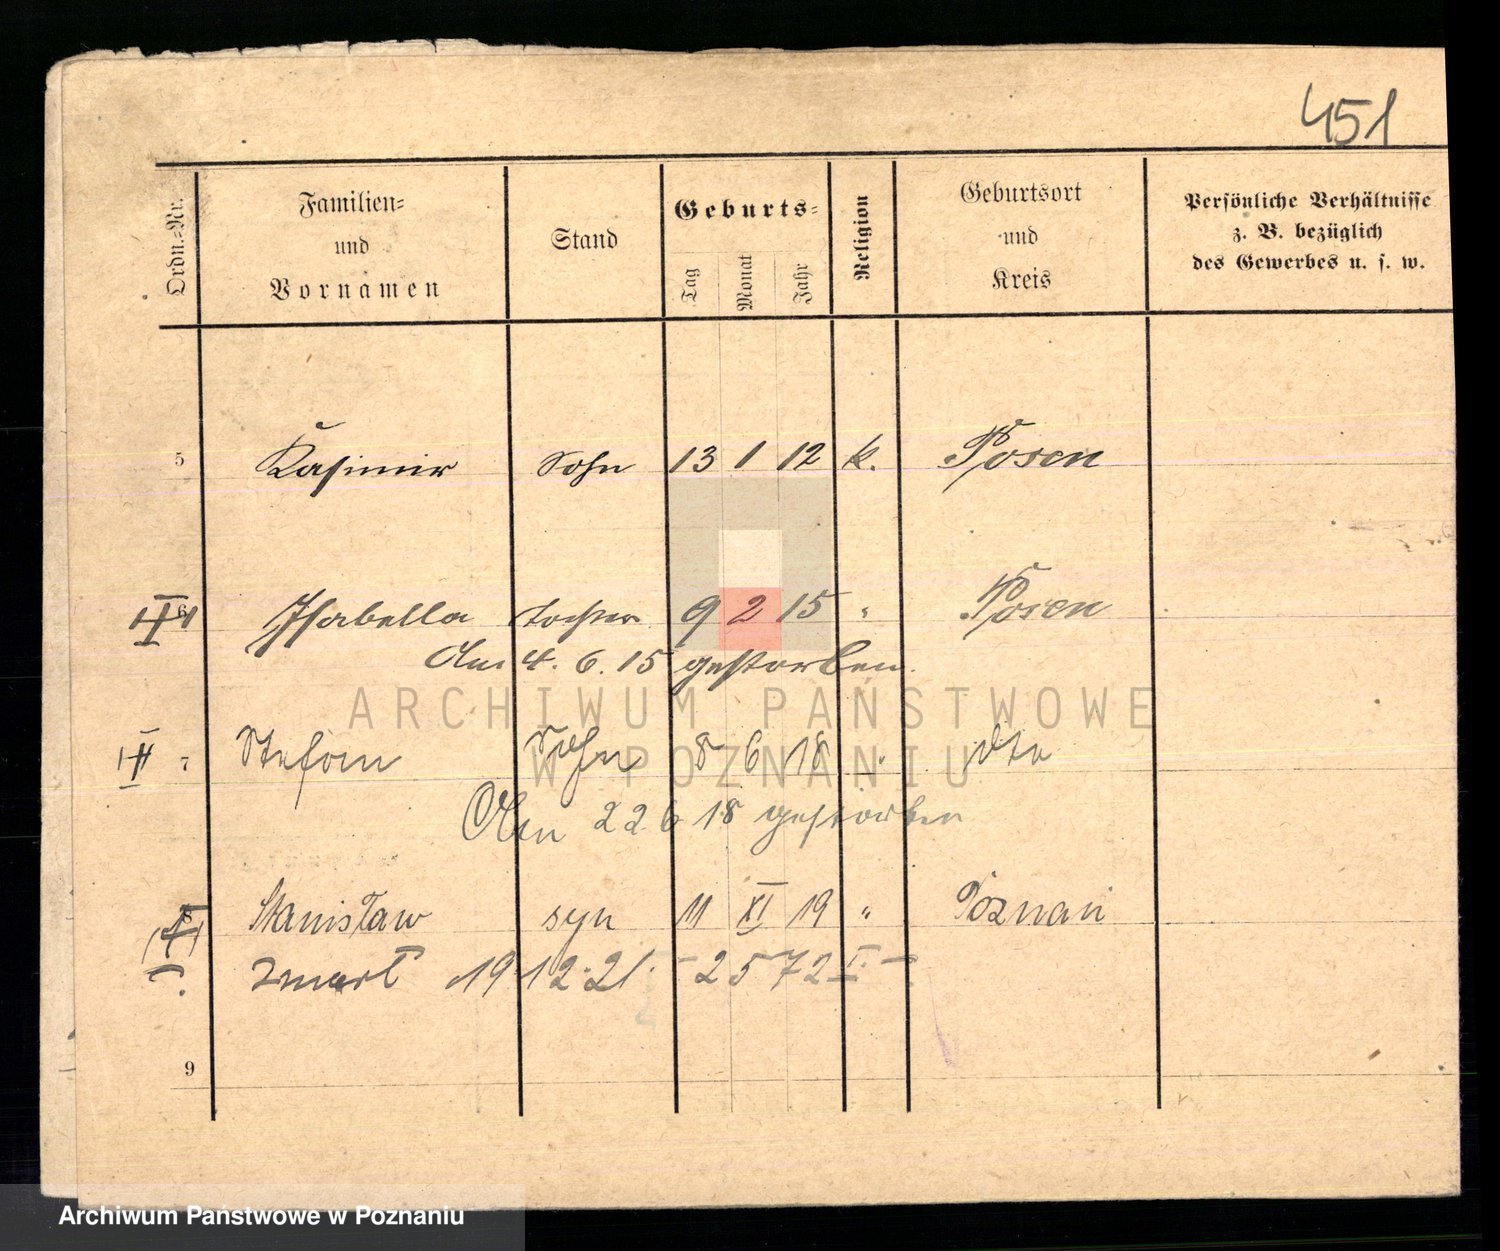 451
Ordn.=Nr.
Familien=
und
Vornamen
Stand
Geburts=
Tag
Monat
Jahr
Religion
Geburtsort
und
Kreis
Persönliche Verhältnisse
z. B. bezüglich
des Gewerbes u. s. w.
5 Kasimir Sohn 13 1 12 k. Posen
6 Isabella Tochter 9 2 15 " Posen
Am 4. 6. 15 gestorben.
7 Stefan Sohn 8 6 18 " dto
Am 22 6 18 gestorben
8 Stanisław syn 11 XI 19 " Poznań
zmarł 19 12. 21. - 2572 I. -
9
ARCHIWUM PAŃSTWOWE
W POZNANIU
Archiwum Państwowe w Poznaniu